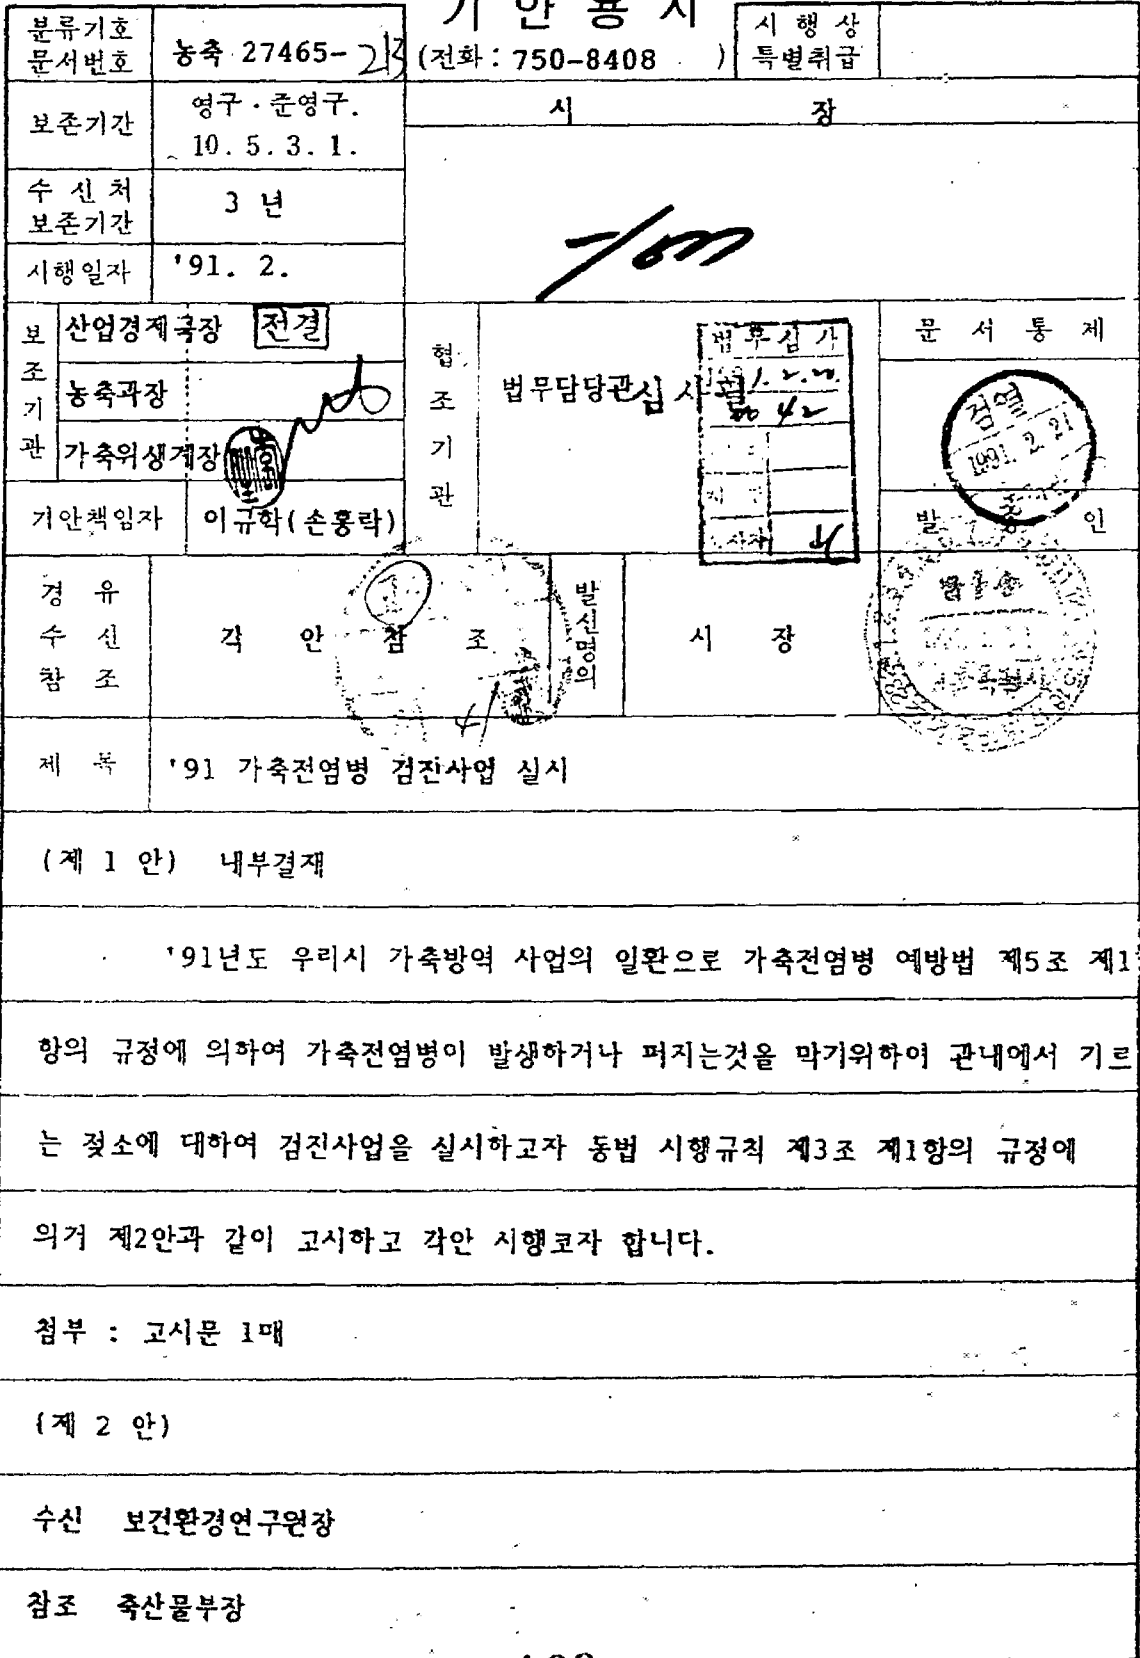 기 안 용 지
분류기호
문서번호
농축 27465-213
(전화 : 750-8408 )
시 행 상
특별취급
보존기간
영구 · 준영구.
10. 5. 3. 1.
시 장
수 신 처
보존기간
3 년
시행일자
'91. 2.
보조기관
산업경제국장 전결
농축과장
가축위생계장
협조기관
법무담당관
심사필
법무심사
문 서 통 제
검열
1991. 2. 21
기안책임자
이규학(손홍락)
발 송 인
경 유
수 신
참 조
각 안 참 조
발신명의
시 장
제 목
'91 가축전염병 검진사업 실시
(제 1 안) 내부결재
'91년도 우리시 가축방역 사업의 일환으로 가축전염병 예방법 제5조 제1
항의 규정에 의하여 가축전염병이 발생하거나 퍼지는것을 막기위하여 관내에서 기르
는 젖소에 대하여 검진사업을 실시하고자 동법 시행규칙 제3조 제1항의 규정에
의거 제2안과 같이 고시하고 각안 시행코자 합니다.
첨부 : 고시문 1매
(제 2 안)
수신 보건환경연구원장
참조 축산물부장